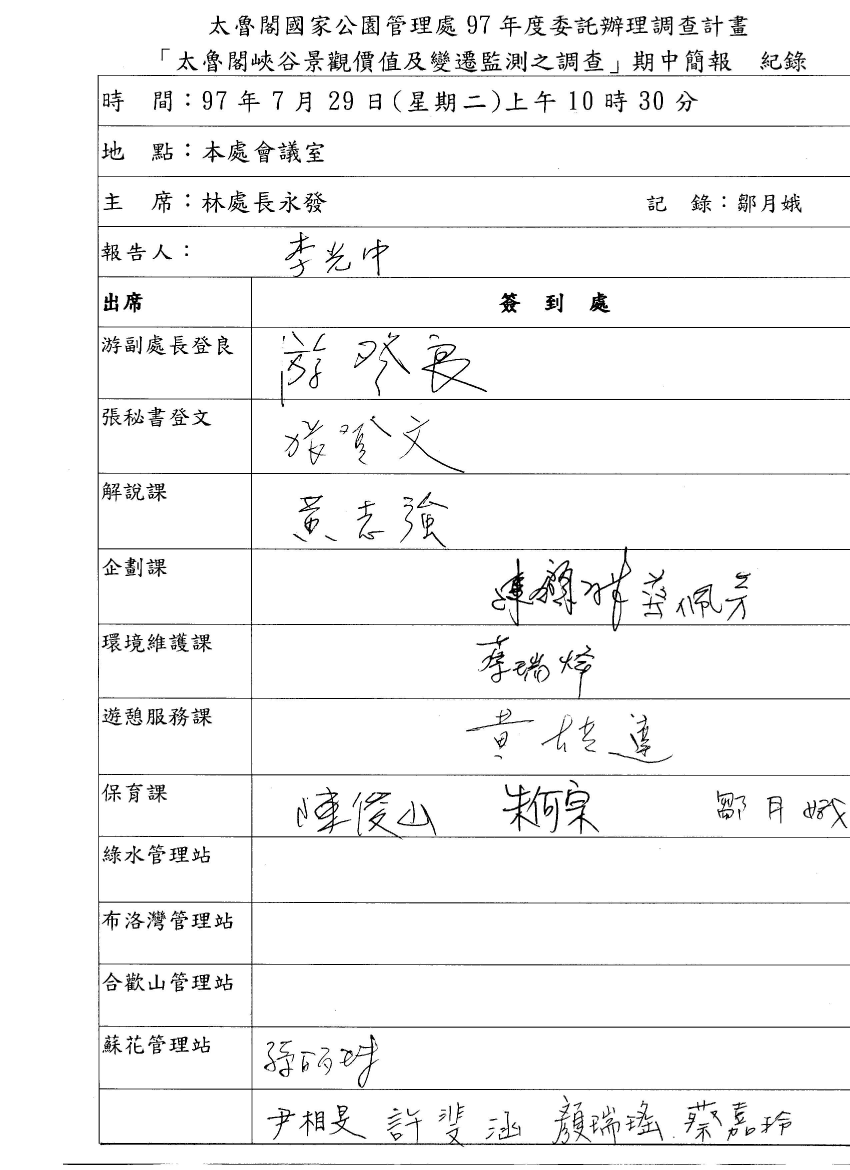 太魯閣國家公園管理處 97 年度委託辦理調查計畫
「太魯閣峽谷景觀價值及變遷監測之調查」期中簡報 紀錄
時 間：97 年 7 月 29 日(星期二)上午 10 時 30 分
地 點：本處會議室
主 席：林處長永發 記 錄：鄒月娥
報告人： 李光中
出席 簽 到 處
游副處長登良 游登良
張秘書登文 張登文
解說課 黃志強
企劃課 陳 蔡佩芳
環境維護課 蔡瑞烽
遊憩服務課 黃 達
保育課 陳俊山 朱何宗 鄒月娥
綠水管理站
布洛灣管理站
合歡山管理站
蘇花管理站 孫麗珠
尹相旻 許斐涵 顏瑞瑤 蔡嘉玲